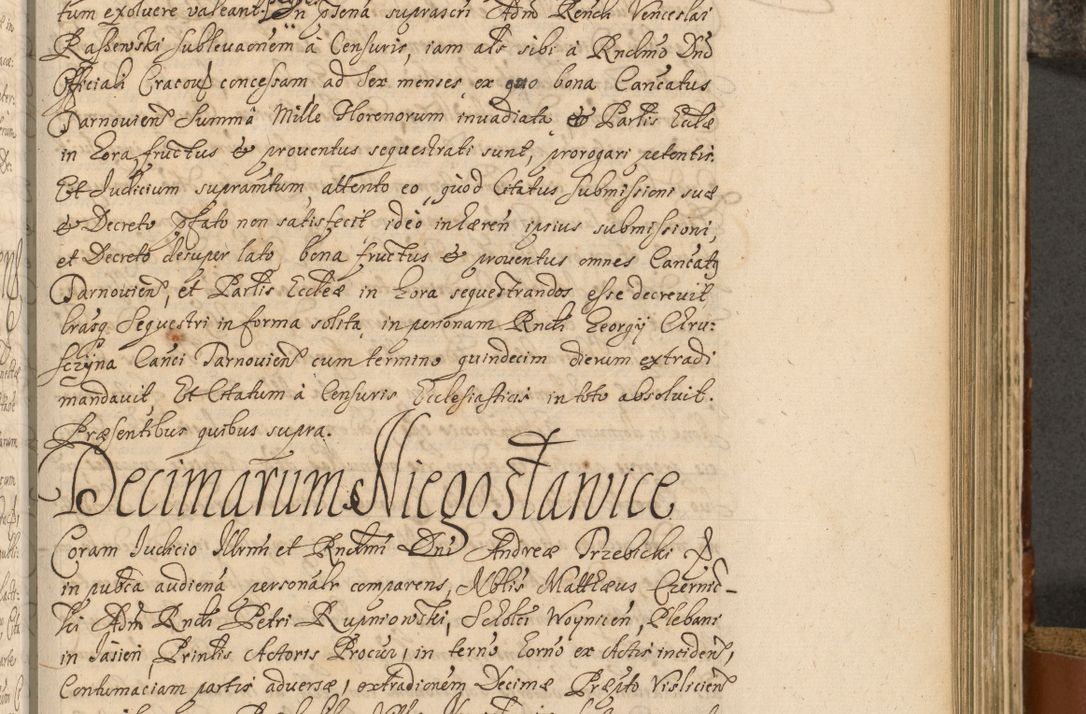 tum exolvere valeant. In psena suprascri Adm Rendi Venceslai
Raszewski sublevaonem à Censuris, iam als sibi à Rndmo Dno
Officiali Cracov concessam ad sex menses, ex quo bona Cancatus
Tarnovien Summâ Mille florenorum invadiata & Partis Ecclæ
in Zora fructus & proventus sequestrati sunt, prorogari petentis.
Et Iudicium supramtum attento eo, quod Citatus submissioni suæ
& Decreto pfato non satisfecit ideo inhæren ipsius submissioni,
et Decreto desuper lato, bona fructus & proventus omnes Cancatus
Tarnovien, et Partis Eccleæ in Zora sequestrandos esse decrevit
brasq Sequestri in forma solita in personam Rndi Georgij Chru:
sczyna Canci Tarnovien cum termino quindecim dierum extradi
mandavit Et Citatum à Censuris Ecclesiasticis in toto absolvit.
Præsentibus quibus supra.
Decimarum Niegosławice
Coram Iudicio Illrmi et Rndmi Dni Andreæ Trzebicki
in pubca audiena personalr comparens, Nblis Matthæus Czernic-
ki Adm Rndi Petri Rupniowski, Scholci Woynicen, Plebani
in Iasien Prinlis Actoris Procur, in terno horno ex Actis inciden,
Contumaciam partis adversæ, extradionem Decimæ Præpto Vislicien